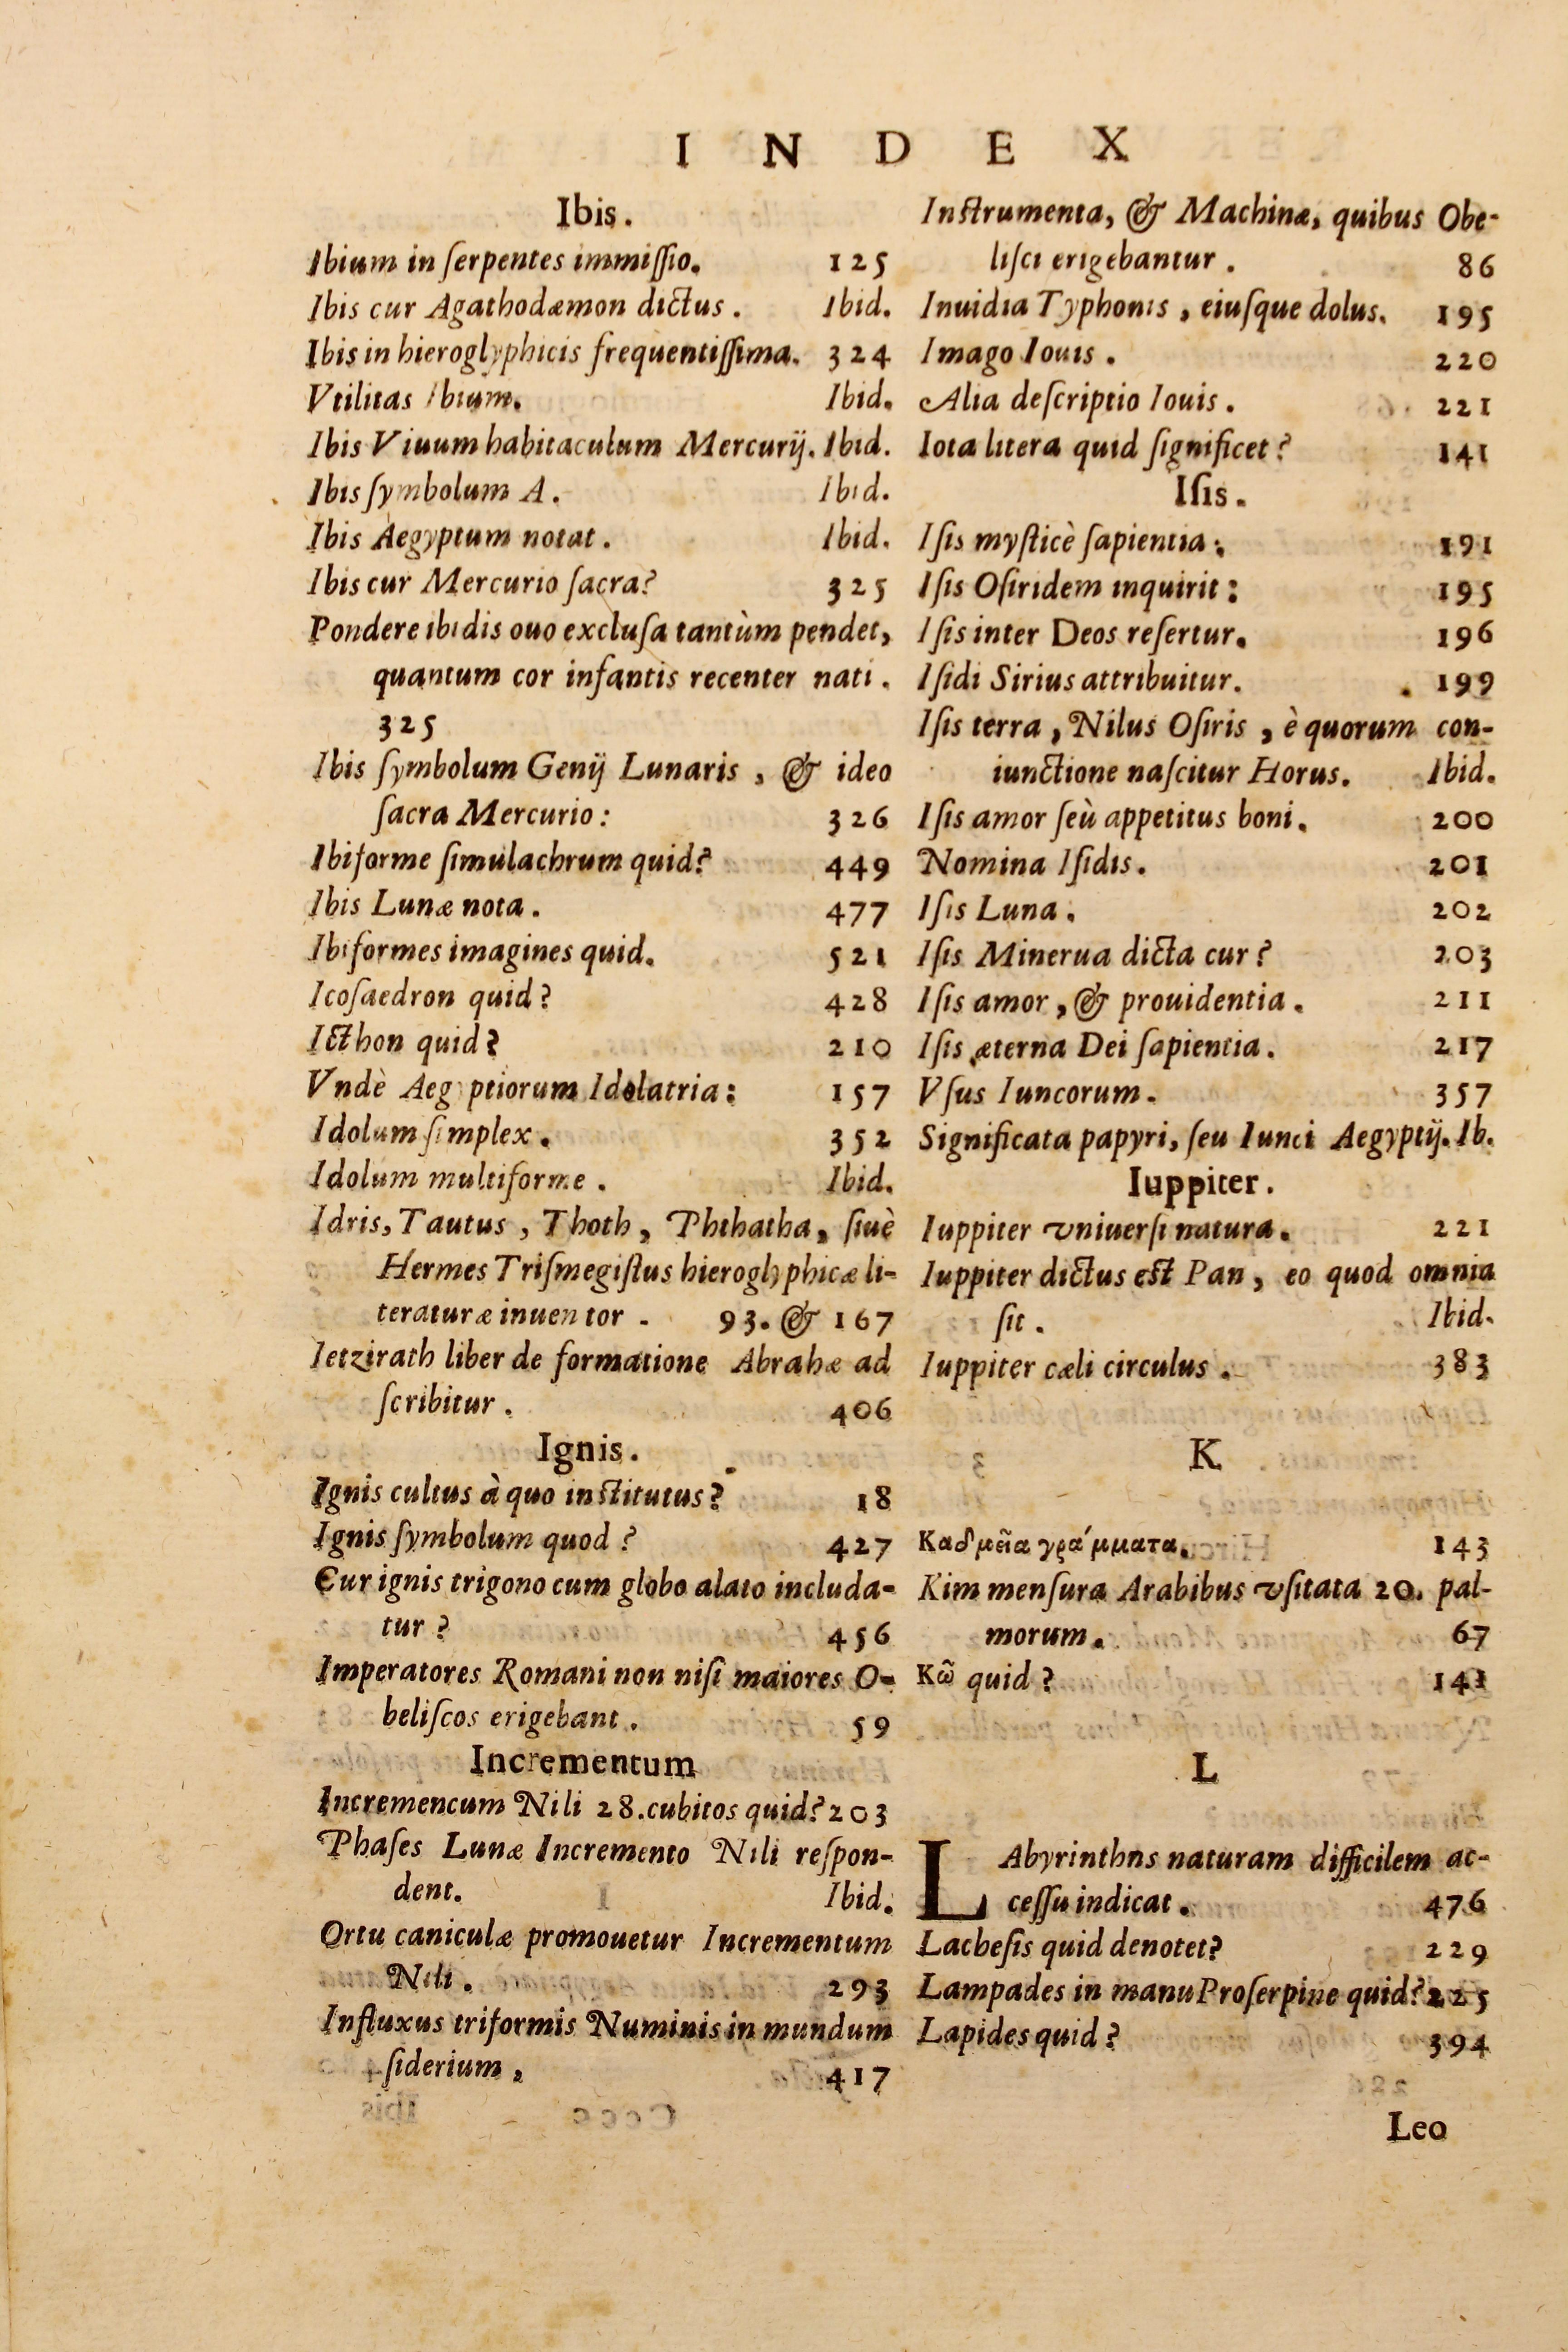 INDEX
Ibis.
Ibium in ſerpentes immiſſio. 125
Ibis cur Agathodæmon dictus. Ibid.
Ibis in hieroglyphicis frequentiſſima. 324
Vtilitas Ibium. Ibid.
Ibis Viuum habitaculum Mercurij. Ibid.
Ibis ſymbolum A. Ibid.
Ibis Aegyptum notat. Ibid.
Ibis cur Mercurio ſacra? 325
Pondere ibidis ouo excluſa tantùm pendet,
quantum cor infantis recenter nati.
325
Ibis ſymbolum Genij Lunaris, & ideo
ſacra Mercurio: 326
Ibiforme ſimulachrum quid? 449
Ibis Lunæ nota. 477
Ibiformes imagines quid. 521
Icoſaedron quid? 428
Icthon quid? 210
Vndè Aegyptiorum Idolatria: 157
Idolum ſimplex. 352
Idolum multiforme. Ibid.
Idris, Tautus, Thoth, Phthatha, ſiuè
Hermes Triſmegiſtus hieroglyphicæ li-
teraturæ inuentor. 93. & 167
Ietzirath liber de formatione Abrahæ ad
ſcribitur. 406
Ignis.
Ignis cultus à quo inſtitutus? 18
Ignis ſymbolum quod? 427
Cur ignis trigono cum globo alato includa-
tur? 456
Imperatores Romani non niſi maiores O-
beliſcos erigebant. 59
Incrementum
Incremencum Nili 28. cubitos quid? 203
Phaſes Lunæ Incremento Nili reſpon-
dent. Ibid.
Ortu caniculæ promouetur Incrementum
Nili. 293
Influxus triformis Numinis in mundum
ſiderium, 417
Inſtrumenta, & Machinæ, quibus Obe-
liſci erigebantur. 86
Inuidia Typhonis, eiuſque dolus. 195
Imago Iouis. 220
Alia deſcriptio Iouis. 221
Iota litera quid ſignificet? 141
Iſis.
Iſis myſticè ſapientia: 191
Iſis Oſiridem inquirit: 195
Iſis inter Deos reſertur. 196
Iſidi Sirius attribuitur. 199
Iſis terra, Nilus Oſiris, è quorum con-
iunctione naſcitur Horus. Ibid.
Iſis amor ſeù appetitus boni. 200
Nomina Iſidis. 201
Iſis Luna. 202
Iſis Minerua dicta cur? 203
Iſis amor, & prouidentia. 211
Iſis æterna Dei ſapientia. 217
Vſus Iuncorum. 357
Significata papyri, ſeu Iunci Aegyptij. Ib.
Iuppiter.
Iuppiter vniuerſi natura. 221
Iuppiter dictus eſt Pan, eo quod omnia
ſit. Ibid.
Iuppiter cæli circulus. 383
K
Καδμεῖα γράμματα. 143
Kim menſura Arabibus vſitata 20. pal-
morum. 67
Κῶ quid? 141
L
LAbyrinthns naturam difficilem ac-
ceſſu indicat. 476
Lacheſis quid denotet? 229
Lampades in manu Proſerpine quid? 225
Lapides quid? 394
Leo